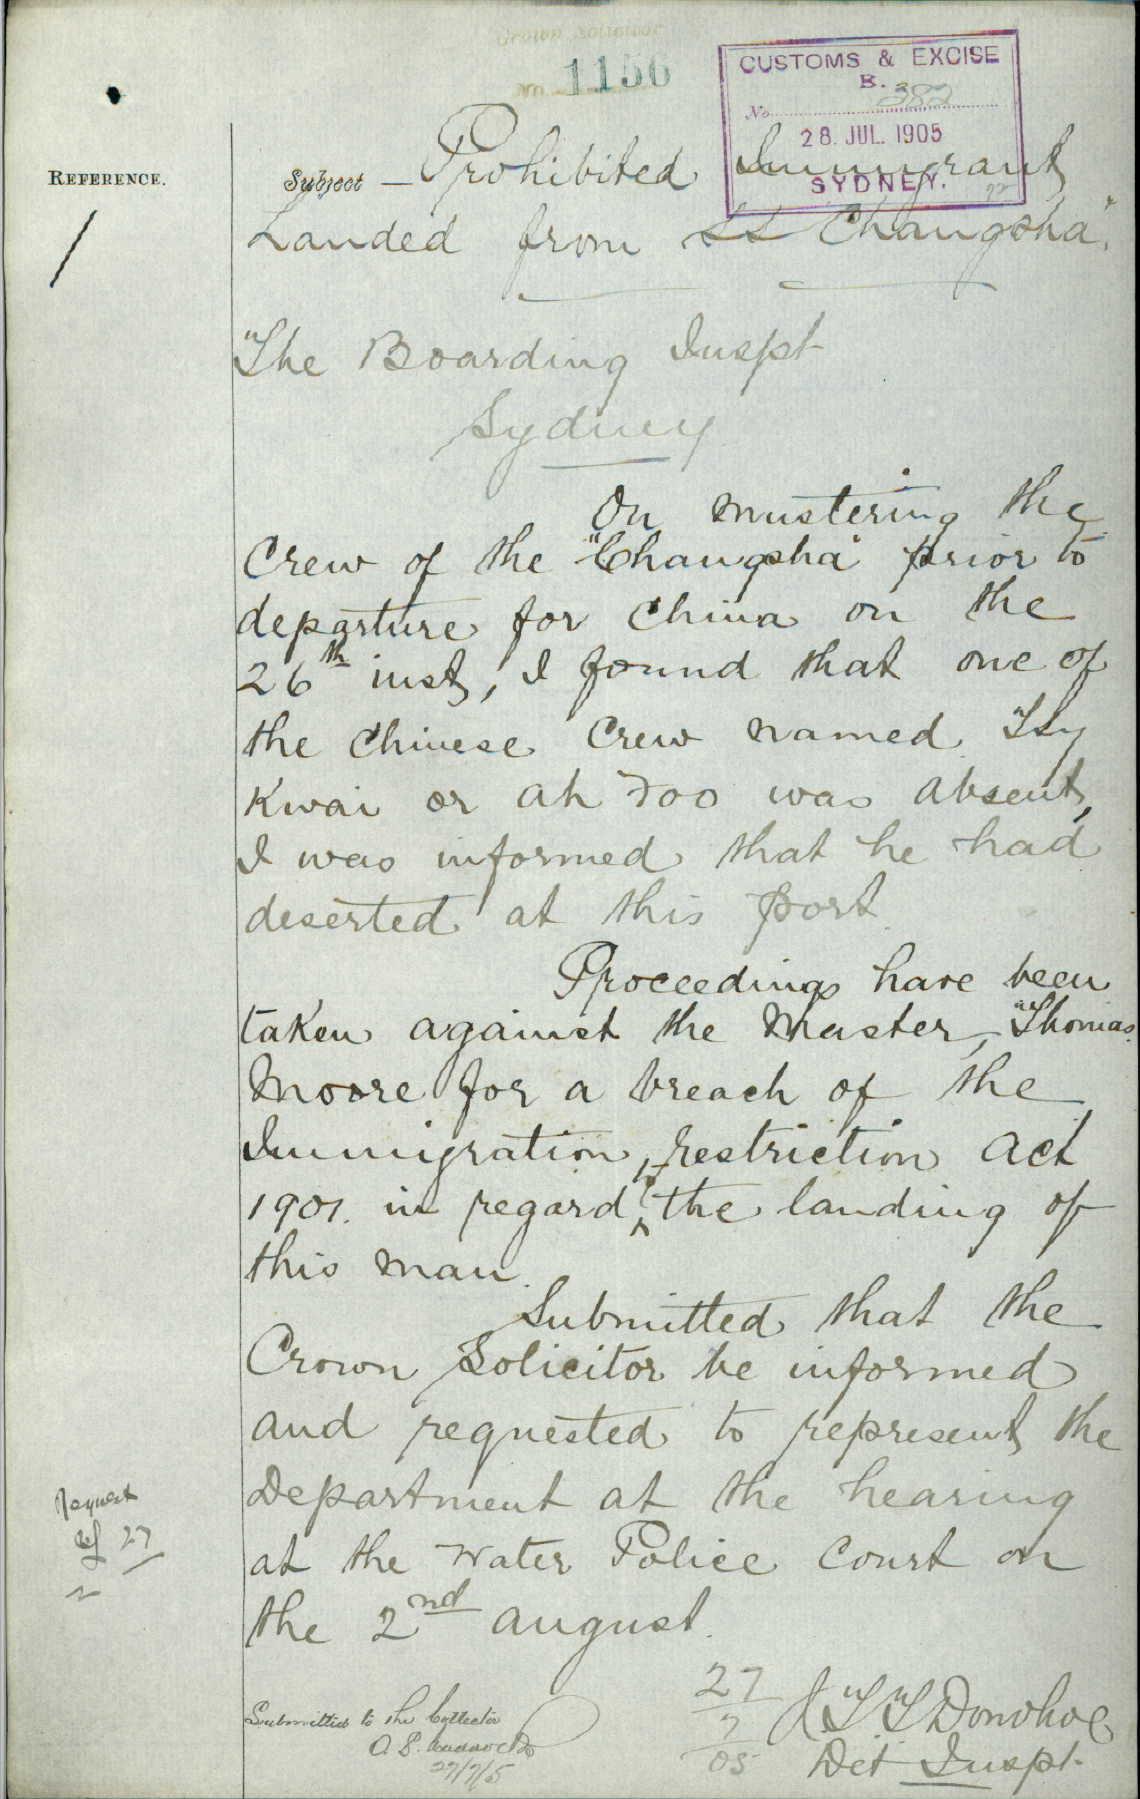 Crown Solicitor
No. 1156
CUSTOMS & EXCISE
B.
No. 382
28. JUL. 1905
SYDNEY.
REFERENCE.
Subject — Prohibited Immigrant
Landed from SS "Changsha".
The Boarding Inspt
Sydney
On mustering the
Crew of the "Changsha" prior to
departure for China on the
26th inst, I found that one of
the Chinese Crew named Tsy
Kwai or Ah Foo was absent,
I was informed that he had
deserted at this port
Proceedings have been
taken against the Master, Thomas
Moore for a breach of the
Immigration, restriction Act
1901. in regard to the landing of
this man.
Submitted that the
Crown Solicitor be informed
and requested to represent the
Department at the hearing
at the Water Police Court on
the 2nd August.
Request
27
27
7
05
J T T Donohoe
Det Inspt.
Submitted to the Collector
27/7/5